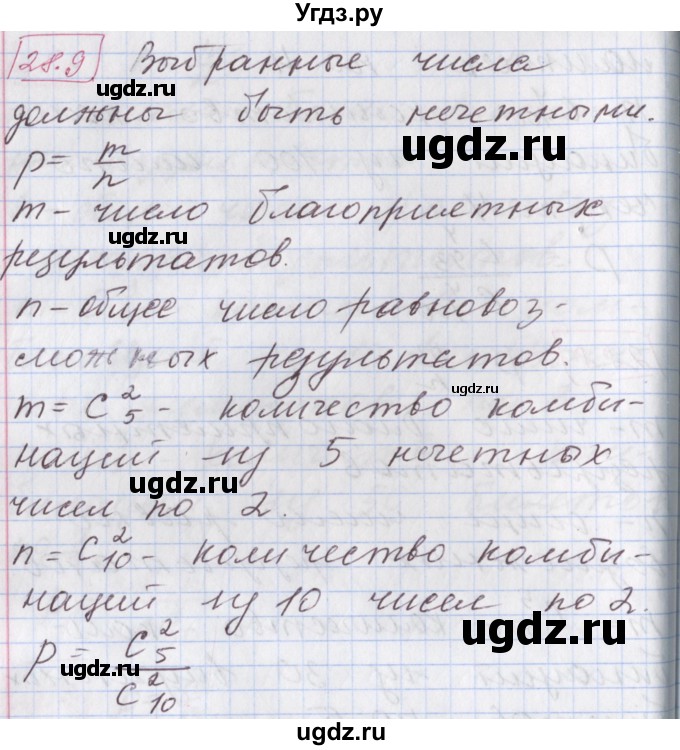 Угдз.ру
28.9 Выбранные числа
должны быть нечетными.
ugdz.ru
ugdz.ru
P = m/n
m - число благоприятных
ugdz.ru
результатов.
n - общее число равновоз-
можных результатов.
ugdz.ru
m = C₅² - количество комби-
наций из 5 нечетных
ugdz.ru
чисел по 2.
n = C₁₀² - количество комби-
наций из 10 чисел по 2.
ugdz.ru
P = C₅²/C₁₀²
ugdz.ru